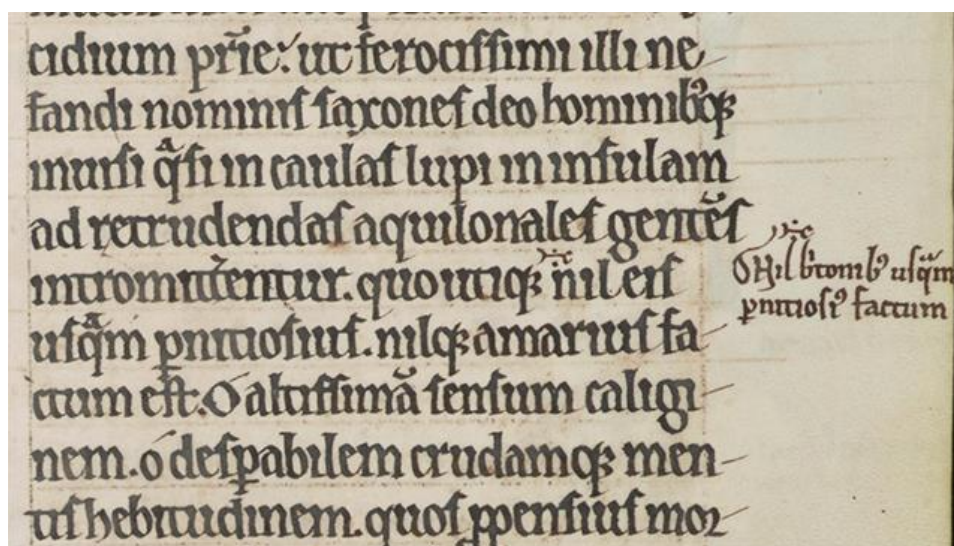 cidium pr̄ie. ut ferocissimi illi ne-
fandi nominis saxones deo hominib⁹q;
inuisi qᵃsi in caulas lupi in insulam
ad retrudendas aquilonales gentēs
intromitt̄entur. quo utiq; nil eis
usqᵃm ꝑnitiosius. nilq; amarius fa-
ctum est. O altissimā sensum caligi-
nem. o desꝑabilem crudamq; men-
tis hebitudinem. quos ꝓpensius mor-
Nil b'tonib⁹ usqᵃm
ꝑnitios⁹ factum